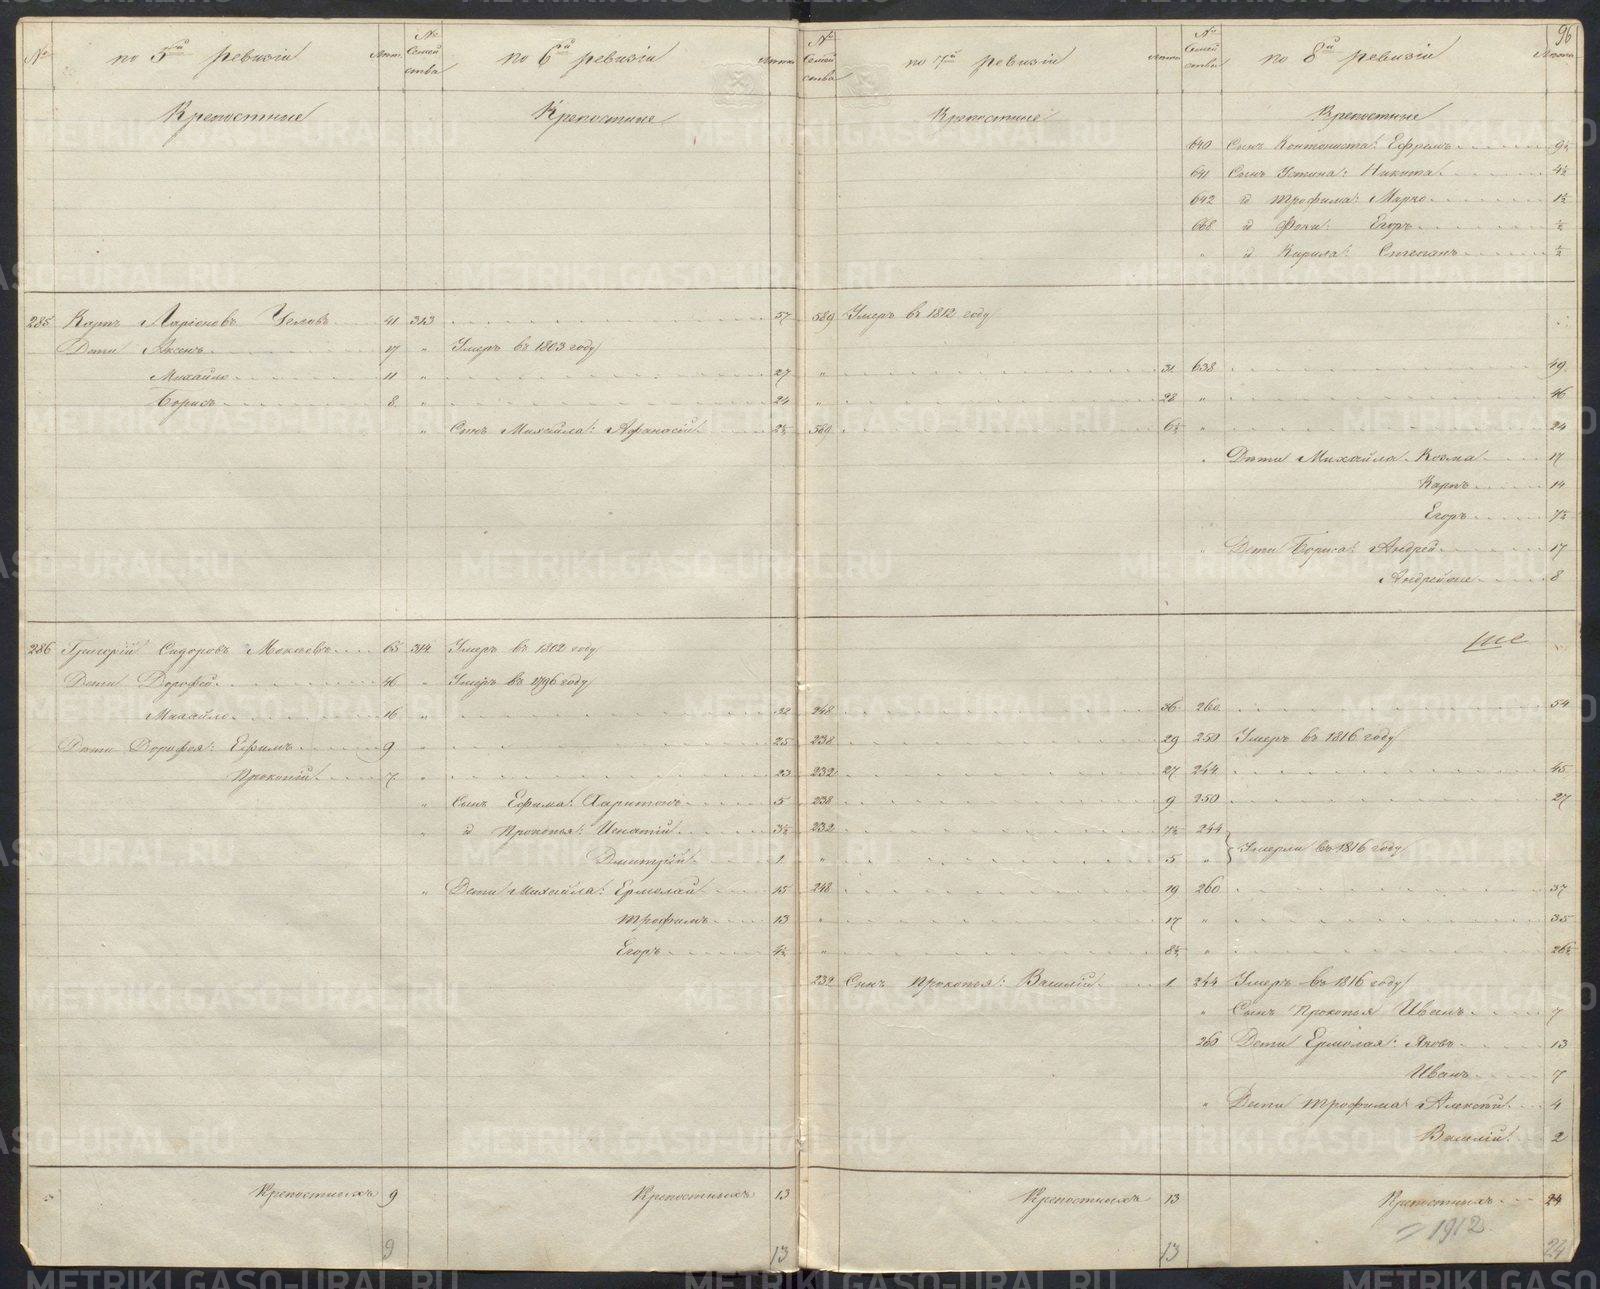 № по 5й ревизіи Лѣт. № Семейства по 6й ревизіи Лѣта № Семейства по 7й ревизіи Лѣта № Семейства по 8й ревизіи Лѣта 96
Крепостные Крепостные Крепостные Крепостные
640 Сынъ Контониста: Ефремъ 9½
641 Сынъ Устина: Никита 4½
642 и Трофима: Марко 1½
668 и Фоки: Егоръ ½
„ и Кирила: Степанъ ½
285 Карпъ Ларіоновъ Угловъ 41 313 57 589 Умеръ въ 1812 году
Дети Аксенъ 17 „ Умеръ въ 1803 году
Михайло 11 „ 27 „ 31 638 49
Борисъ 8 „ 24 „ 28 „ 46
„ Сынъ Михайла: Афанасій 2½ 560 6½ „ 24
„ Дети Михайла: Козма 17
Карпъ 14
Егоръ 7½
„ Дети Бориса: Андрей 17
Андрей же 8
286 Григорій Сидоровъ Мокѣевъ 65 314 Умеръ въ 1802 году
Дети Дорофей 46 „ Умеръ въ 1796 году
Михайло 16 „ 32 248 36 260 54
Дети Дорофея: Ефимъ 9 „ 25 238 29 250 Умеръ въ 1816 году
Прокопій 7 „ 23 232 27 244 45
„ Сынъ Ефима: Харитонъ 5 238 9 250 27
„ и Прокопья: Игнатій 3½ 232 7½ 244
Дмитрій 1 „ 5 „ Умерли въ 1816 году
„ Дети Михайла: Ермолай 15 248 19 260 37
Трофимъ 13 „ 17 „ 35
Егоръ 4½ „ 8½ „ 26½
232 Сынъ Прокопья: Василій 1 244 Умеръ въ 1816 году
„ Сынъ Прокопья Иванъ 7
260 Дети Ермолая: Яковъ 13
Иванъ 7
„ Дети Трофима: Алексѣй 4
Василій 2
Крепостныхъ 9 Крепостныхъ 13 Крепостныхъ 13 Крепостныхъ 24
1912
9 13 13 24
METRIKI.GASO-URAL.RU